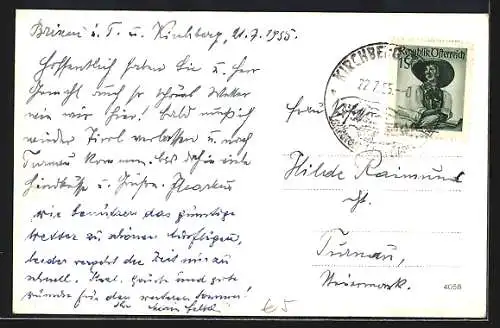 Brixen i. T. u. Kirchberg, 21.7.1955.
Hoffentlich haben Sie u. Herr
Gemahl auch so schönes Wetter
wie wir hier! Bald muß ich
wieder Tirol verlassen u. nach
Turnau kommen. Bis dahin viele
Handküsse u. Grüße.
Wir benützen das günstige
Wetter zu schönen Ausflügen,
leider vergeht die Zeit nur zu
schnell. Herzl. Grüße und gute
Wünsche für den weiteren Sommer!
Ihr
Frau
Hilde Raimund
Turnau,
Steiermark.
KIRCHBERG
22.7.55
Republik Österreich
1 S
4058
€5